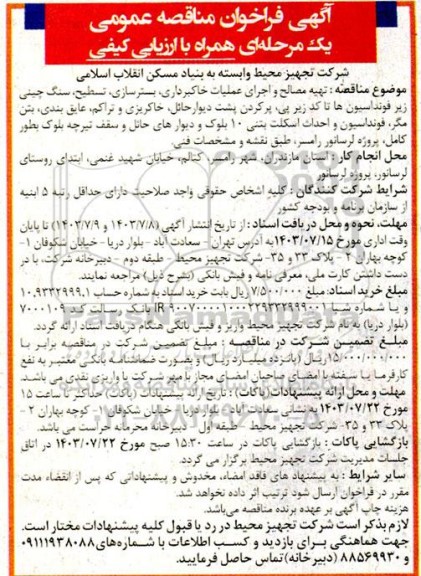 آگهی فراخوان مناقصه عمومی
یک مرحله‌ای همراه با ارزیابی کیفی
شرکت تجهیز محیط وابسته به بنیاد مسکن انقلاب اسلامی
موضوع مناقصه : تهیه مصالح و اجرای عملیات خاکبرداری، بسترسازی، تسطیح، سنگ چینی
زیر فونداسیون ها تا کد زیر پی، پرکردن پشت دیوارحائل، خاکریزی و تراکم، عایق بندی، بتن
مگر، فونداسیون و احداث اسکلت بتنی ۱۰ بلوک و دیوار های حائل و سقف تیرچه بلوک بطور
کامل، پروژه لرسانور رامسر، طبق نقشه و مشخصات فنی
محل انجام کار : استان مازندران، شهر رامسر، کتالم، خیابان شهید غنمی، ابتدای روستای
لرسانور، پروژه لرسانور
شرایط شرکت کنندگان : کلیه اشخاص حقوقی واجد صلاحیت دارای حداقل رتبه ۵ ابنیه
از سازمان برنامه و بودجه کشور
مهلت، نحوه و محل دریافت اسناد : از تاریخ انتشار آگهی (۱۴۰۳/۷/۸ و ۱۴۰۳/۷/۹) تا پایان
وقت اداری مورخ ۱۴۰۳/۰۷/۱۵ به آدرس تهران - سعادت آباد - بلوار دریا - خیابان شکوفان ۱-
کوچه بهاران ۲ - پلاک ۳۳ و ۳۵- شرکت تجهیز محیط - طبقه دوم - دبیرخانه شرکت، با در
دست داشتن کارت ملی، معرفی نامه و فیش بانکی (بشرح ذیل) مراجعه نمایند.
مبلغ خرید اسناد: مبلغ ۷/۵۰۰/۰۰۰ ریال بابت خرید اسناد به شماره حساب ۱۰.۹۳۳۲۹۹۹.۱
و یا شماره شبا IR بانک رسالت کد ۷۰۰۰۱۰۹
(بلوار دریا) به نام شرکت تجهیز محیط واریز و فیش بانکی هنگام دریافت اسناد ارائه گردد.
مبلغ تضمین شرکت در مناقصه : مبلغ تضمین شرکت در مناقصه برابر با
۱۵/۰۰۰/۰۰۰/۰۰۰ ریال (پانزده میلیارد ریال) و بصورت ضمانتنامه بانکی معتبر به نفع
کارفرما یا سفته با امضای صاحبان امضای مجاز با مهر شرکت یا واریزی نقدی می باشد.
مهلت و محل ارائه پیشنهادات(پاکات) : تاریخ ارائه پیشنهادات (پاکت) حداکثر تا ساعت ۱۵
مورخ ۱۴۰۳/۰۷/۲۲ به نشانی سعادت آباد - بلوار دریا - خیابان شکوفان ۱ - کوچه بهاران ۲ -
پلاک ۳۳ و ۳۵- شرکت تجهیز محیط - طبقه اول - دبیرخانه محرمانه حراست می باشد.
بازگشایی پاکات : بازگشایی پاکات در ساعت ۱۵:۳۰ صبح مورخ ۱۴۰۳/۰۷/۲۲ در اتاق
جلسات مدیریت شرکت تجهیز محیط برگزار می گردد.
سایر شرایط : به پیشنهاد های فاقد امضاء، مخدوش و پیشنهاداتی که پس از انقضاء مدت
مقرر در فراخوان ارسال شود ترتیب اثر داده نخواهد شد.
هزینه چاپ آگهی بر عهده برنده مناقصه می‌باشد.
لازم بذکر است شرکت تجهیز محیط در رد یا قبول کلیه پیشنهادات مختار است.
جهت هماهنگی برای بازدید و کسب اطلاعات با شماره‌های ۰۹۱۱۱۹۳۸۰۸۸
و ۸۸۵۶۹۹۳۰ (دبیرخانه) تماس حاصل فرمایید.